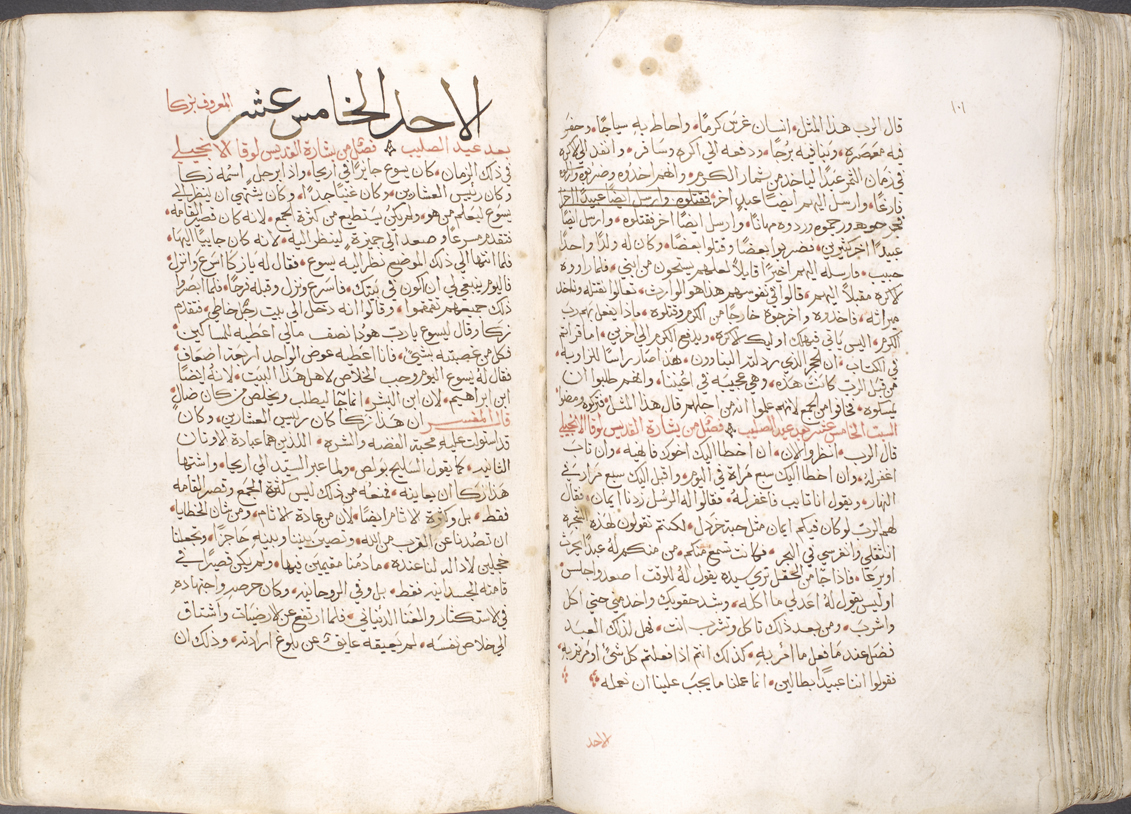 ١٠١
قال الرب هذا المثل انسان غرس كرمًا واحاط به سياجًا وحفر
فيه معصره وبنا فيه برجًا ودفعه الي اكره وسافر وانفد الي الاكره
في زمان الثمر عبدًا لياخد من ثمار الكرم وانهم اخدوه وضربوه وردوه
فارغًا وارسل اليهم ايضًا عبدًا اخر فقتلوه وارسل ايضًا عبدًا اخر
فجرحوه ورجموه وردوه مهانًا وارسل ايضًا اخر فقتلوه وارسل ايضًا
عبيدًا اخر كتيرين فضربوا بعضًا وقتلوا بعضًا وكان له ولدًا واحدًا
حبيب فارسله اليهم اخيرًا قايلًا لعلهم يستحون من ابني فلما راوه
الاكره مقبلًا اليهم قالوا في نفوسهم هذا هو الوارث تعالوا نقتله وناخد
ميراته فاخدوه واخرجوه خارجًا من الكرم وقتلوه فماذا يفعل بهم رب
الكرم اليس ياتي فيهلك اوليك الاكره ويدفع الكرم الي اخرين اما قراتم
في الكتاب ان الحجر الذي ردله البناوون هذا صار راسًا للزاويه
من قبل الرب كانت هذه وهي عجيبه في اعيننا وانهم طلبوا ان
يمسكوه فخافوا من الجمع لانهم علموا انه من اجلهم قال هذا المثل فتركوه ومضوا
السبت الخامس عشر بعد عيد الصليب فصل من بشارة القديس لوقا الانجيلي
قال الرب انظروا الان ان اخطا اليك اخوك فانهيه وان تاب
اغفر له وان اخطا اليك سبع مراة في اليوم واقبل اليك سبع مرار في
النهار ويقول انا تايب فاغفر له فقالوا له الرسل زدنا ايمان فقال
لهم الرب لو كان فيكم ايمان مثل حبة خردل لكنتم تقولون لهذه الشجره
انقلعي وانغرسي في البحر فكانت تسمع منكم من منكم له عبدًا يحرث
او يرعا فاذا جا من الحقل تري سيده يقول له للوقت اصعد واجلس
او ليس يقول له اعد لي ما اكله وشد حقويك واخدمني حتي اكل
واشرب ومن بعد ذلك تاكل وتشرب انت فهل لذلك العبد
فضل عند ما فعل ما امر به كذلك انتم اذا فعلتم كل شئ امرتم به
فقولوا اننا عبيدًا بطالين انما عملنا ما يجب علينا ان نعمله
الاحد
الاحد الخامس عشر المعروف بزكا
بعد عيد الصليب فصل من بشارة القديس لوقا الانجيلي
في ذلك الزمان كان يسوع جايزًا في اريحا واذا برجل اسمه زكا
وكان رييس العشارين وكان غنيًا جدًا وكان يشتهي ان ينظر الي
يسوع ليعلم من هو ولم يكن يستطيع من كثرة الجمع لانه كان قصير القامه
فتقدم مسرعًا وصعد الي جميزة لينظر اليه لانه كان جايبًا اليها
فلما انتها الي ذلك الموضع نظر اليه يسوع فقال له يا زكا اسرع وانزل
فاليوم ينبغي لي ان اكون في بيتك فاسرع ونزل وقبله فرحًا فلما ابصروا
ذلك جميعهم تقمقموا وقالوا انه دخل الي بيت رجل خاطي فتقدم
زكا وقال ليسوع يارب هوذا نصف مالي اعطيه للمساكين
فكل من غصبته بشئ فانا اعطيه عوض الواحد اربعة اضعاف
فقال له يسوع اليوم وجب الخلاص لاهل هذا البيت لانه ايضًا
ابن ابراهيم لان ابن البشر انما جا ليطلب ويخلص من كان ضال
قال المفسر ان هذا زكا كان رييس العشارين وكان
قد استولت عليه محبة الفضه والشره الذين هما عبادة الاوثان
الثانيه كما يقول السليح بولص ولما عبر السيد الي اريحا واشتها
هذا زكا ان يعاينه فمنعه من ذلك ليس كثرة الجمع وقصر القامه
فقط بل وكثرة الاثام ايضًا لان من عادة الاثام ومن شان الخطايا
ان تصدنا عن القرب من الله وتصير بيننا وبينه حاجزًا وتجعلنا
خجلين لا دالة لنا عنده ما دمنا مقيمين فيها ولم يكن قصيرًا في
قامته الجسدانيه فقط بل وفي الروحانيه وكان حرصه واجتهاده
في الاستكثار والغنا الدنياني فلما ارتفع عن الارضيات واشتاق
الي خلاص نفسه لم يعيقه عايق عن بلوغ ارادته وذلك ان